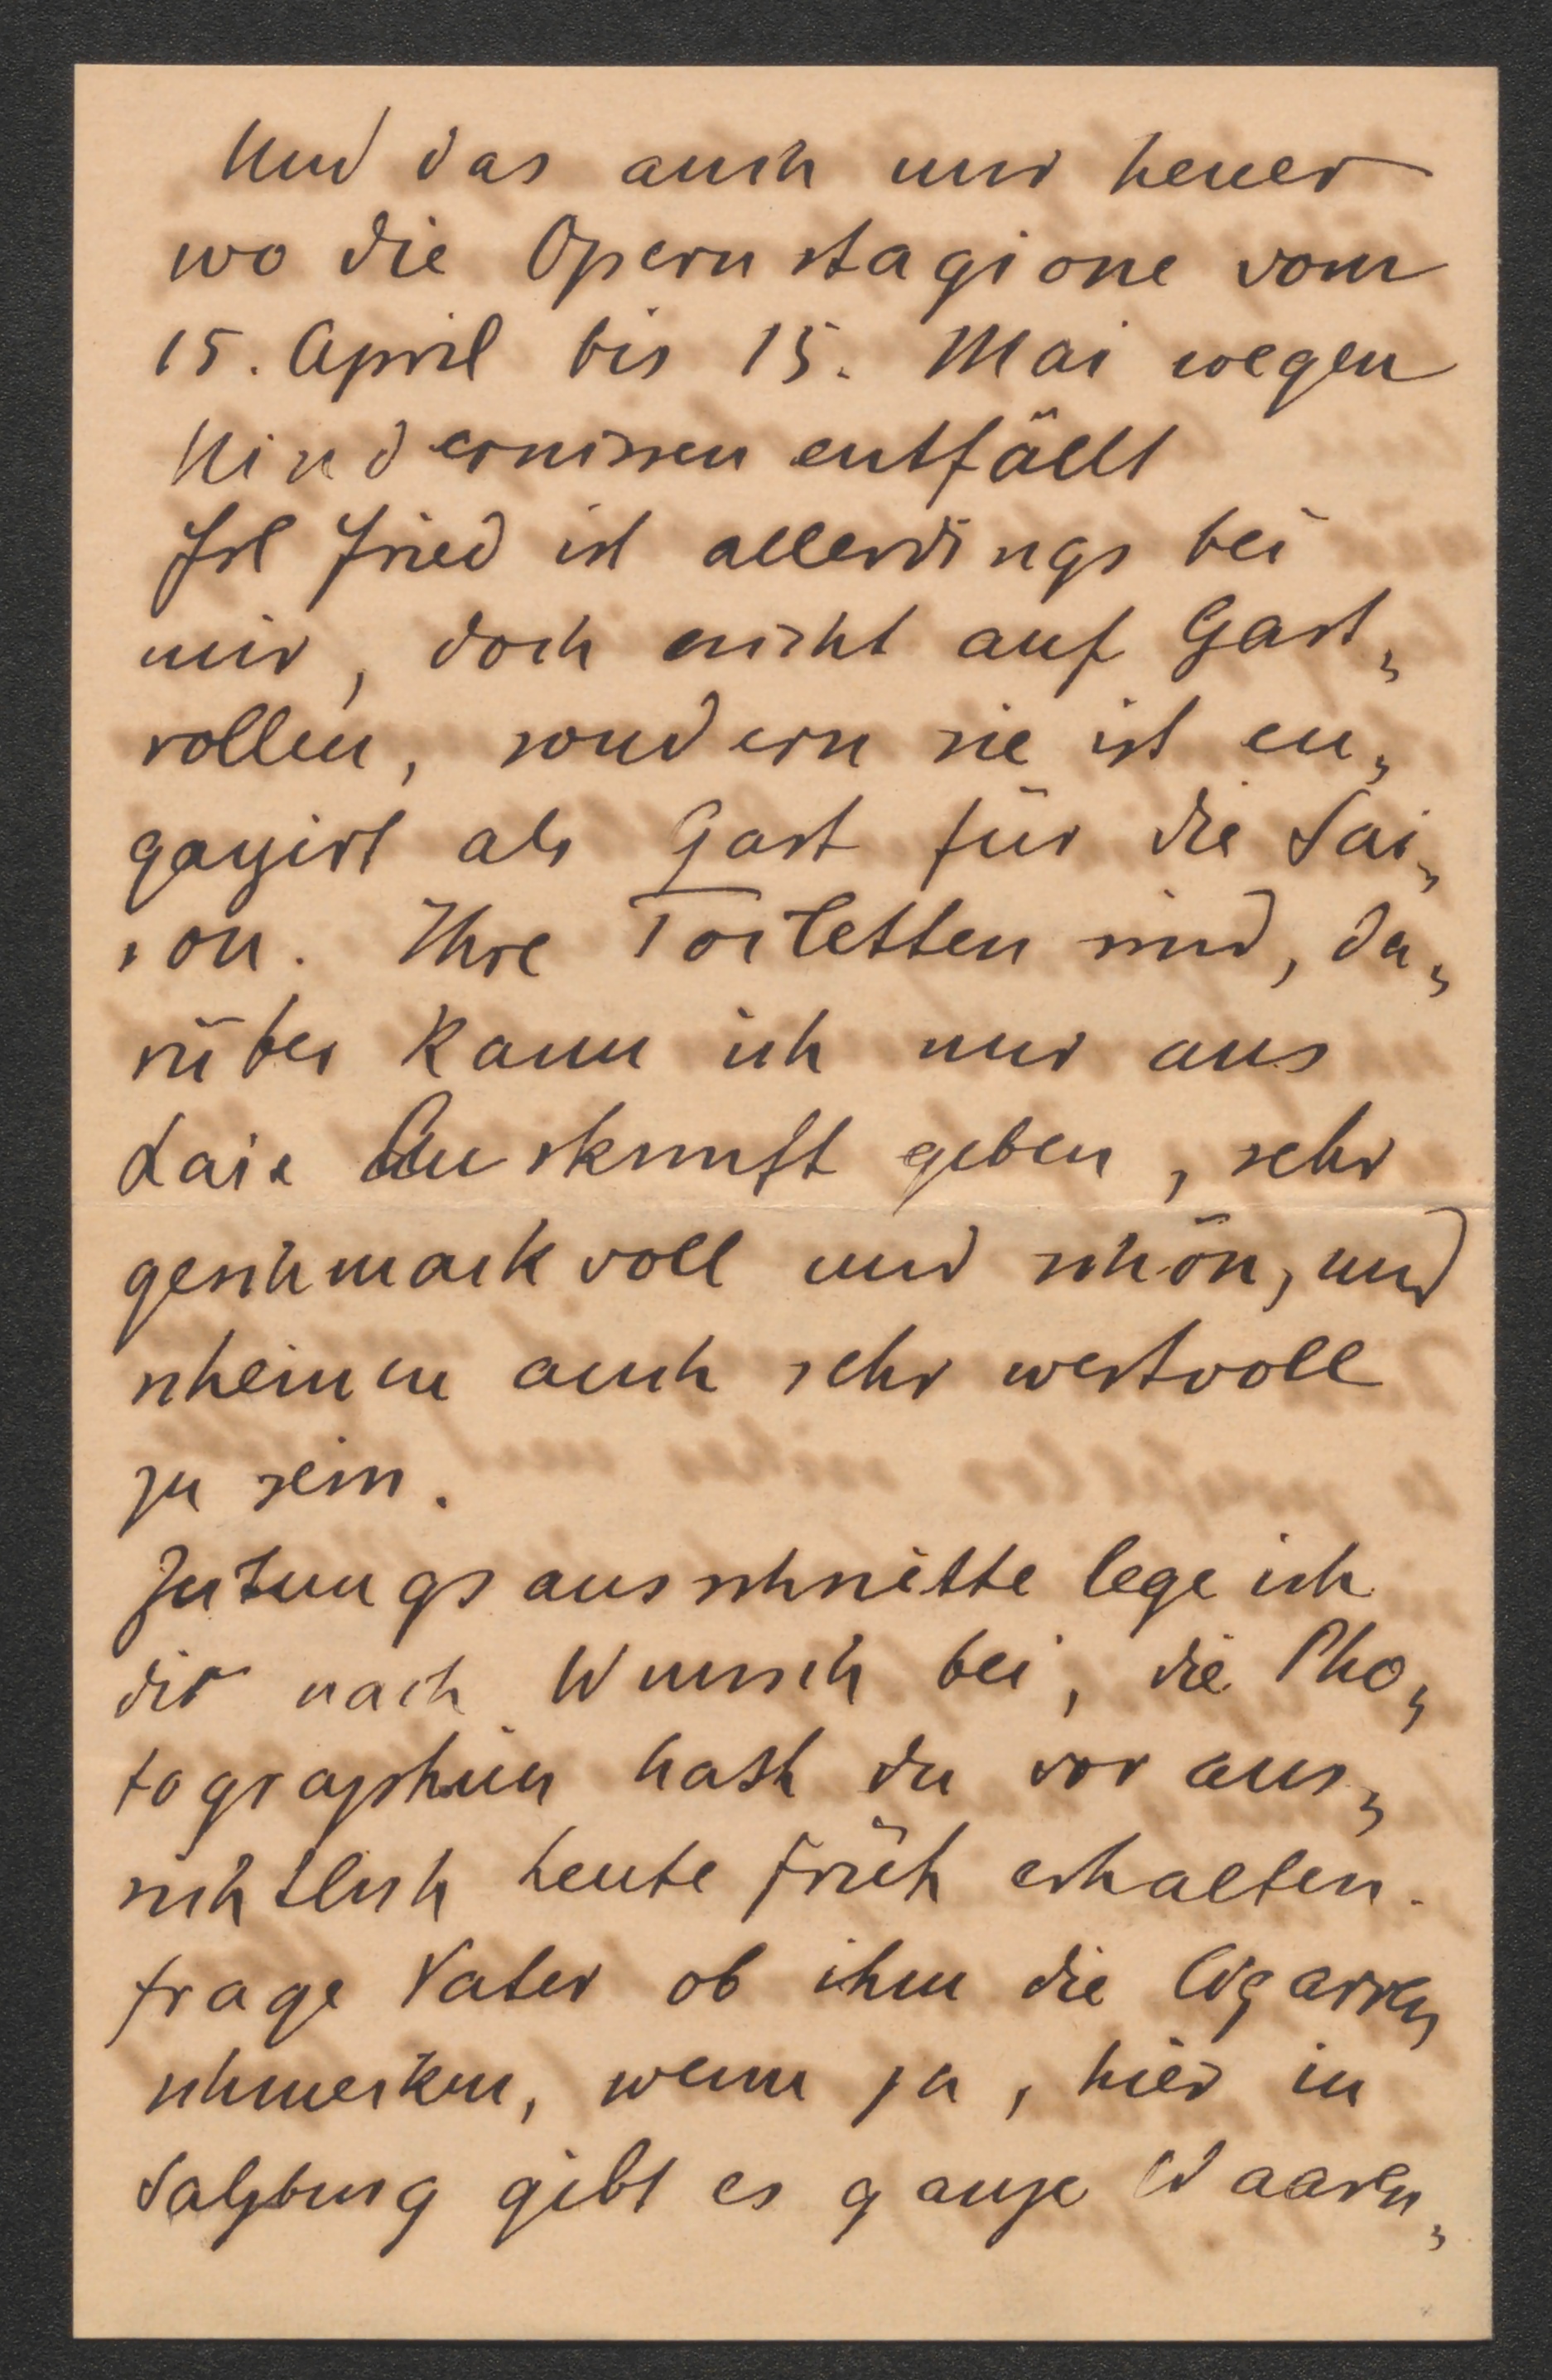 Und das auch nur heuer
wo die Opernstagione vom
15. April bis 15. Mai wegen
Hindernissen entfällt
Frl Fried ist allerdings bei
mir, doch nicht auf Gast„
rollen, sondern sie ist en„
gagirt als Gast für die Sai„
son. Ihre Toiletten sind, da„
rüber kann ich nur aus
Laie Auskunft geben, sehr
geschmackvoll und schön, und
scheinen auch sehr wertvoll
zu sein.
Zeitungsausschnitte lege ich
dir nach Wunsch bei, die Pho„
tographien hast du voraus„
sichtlich heute früh erhalten.
frage Vater ob ihm die Cigarren
schmecken, wenn ja, hier in
Salzburg gibt es ganze Waaren„